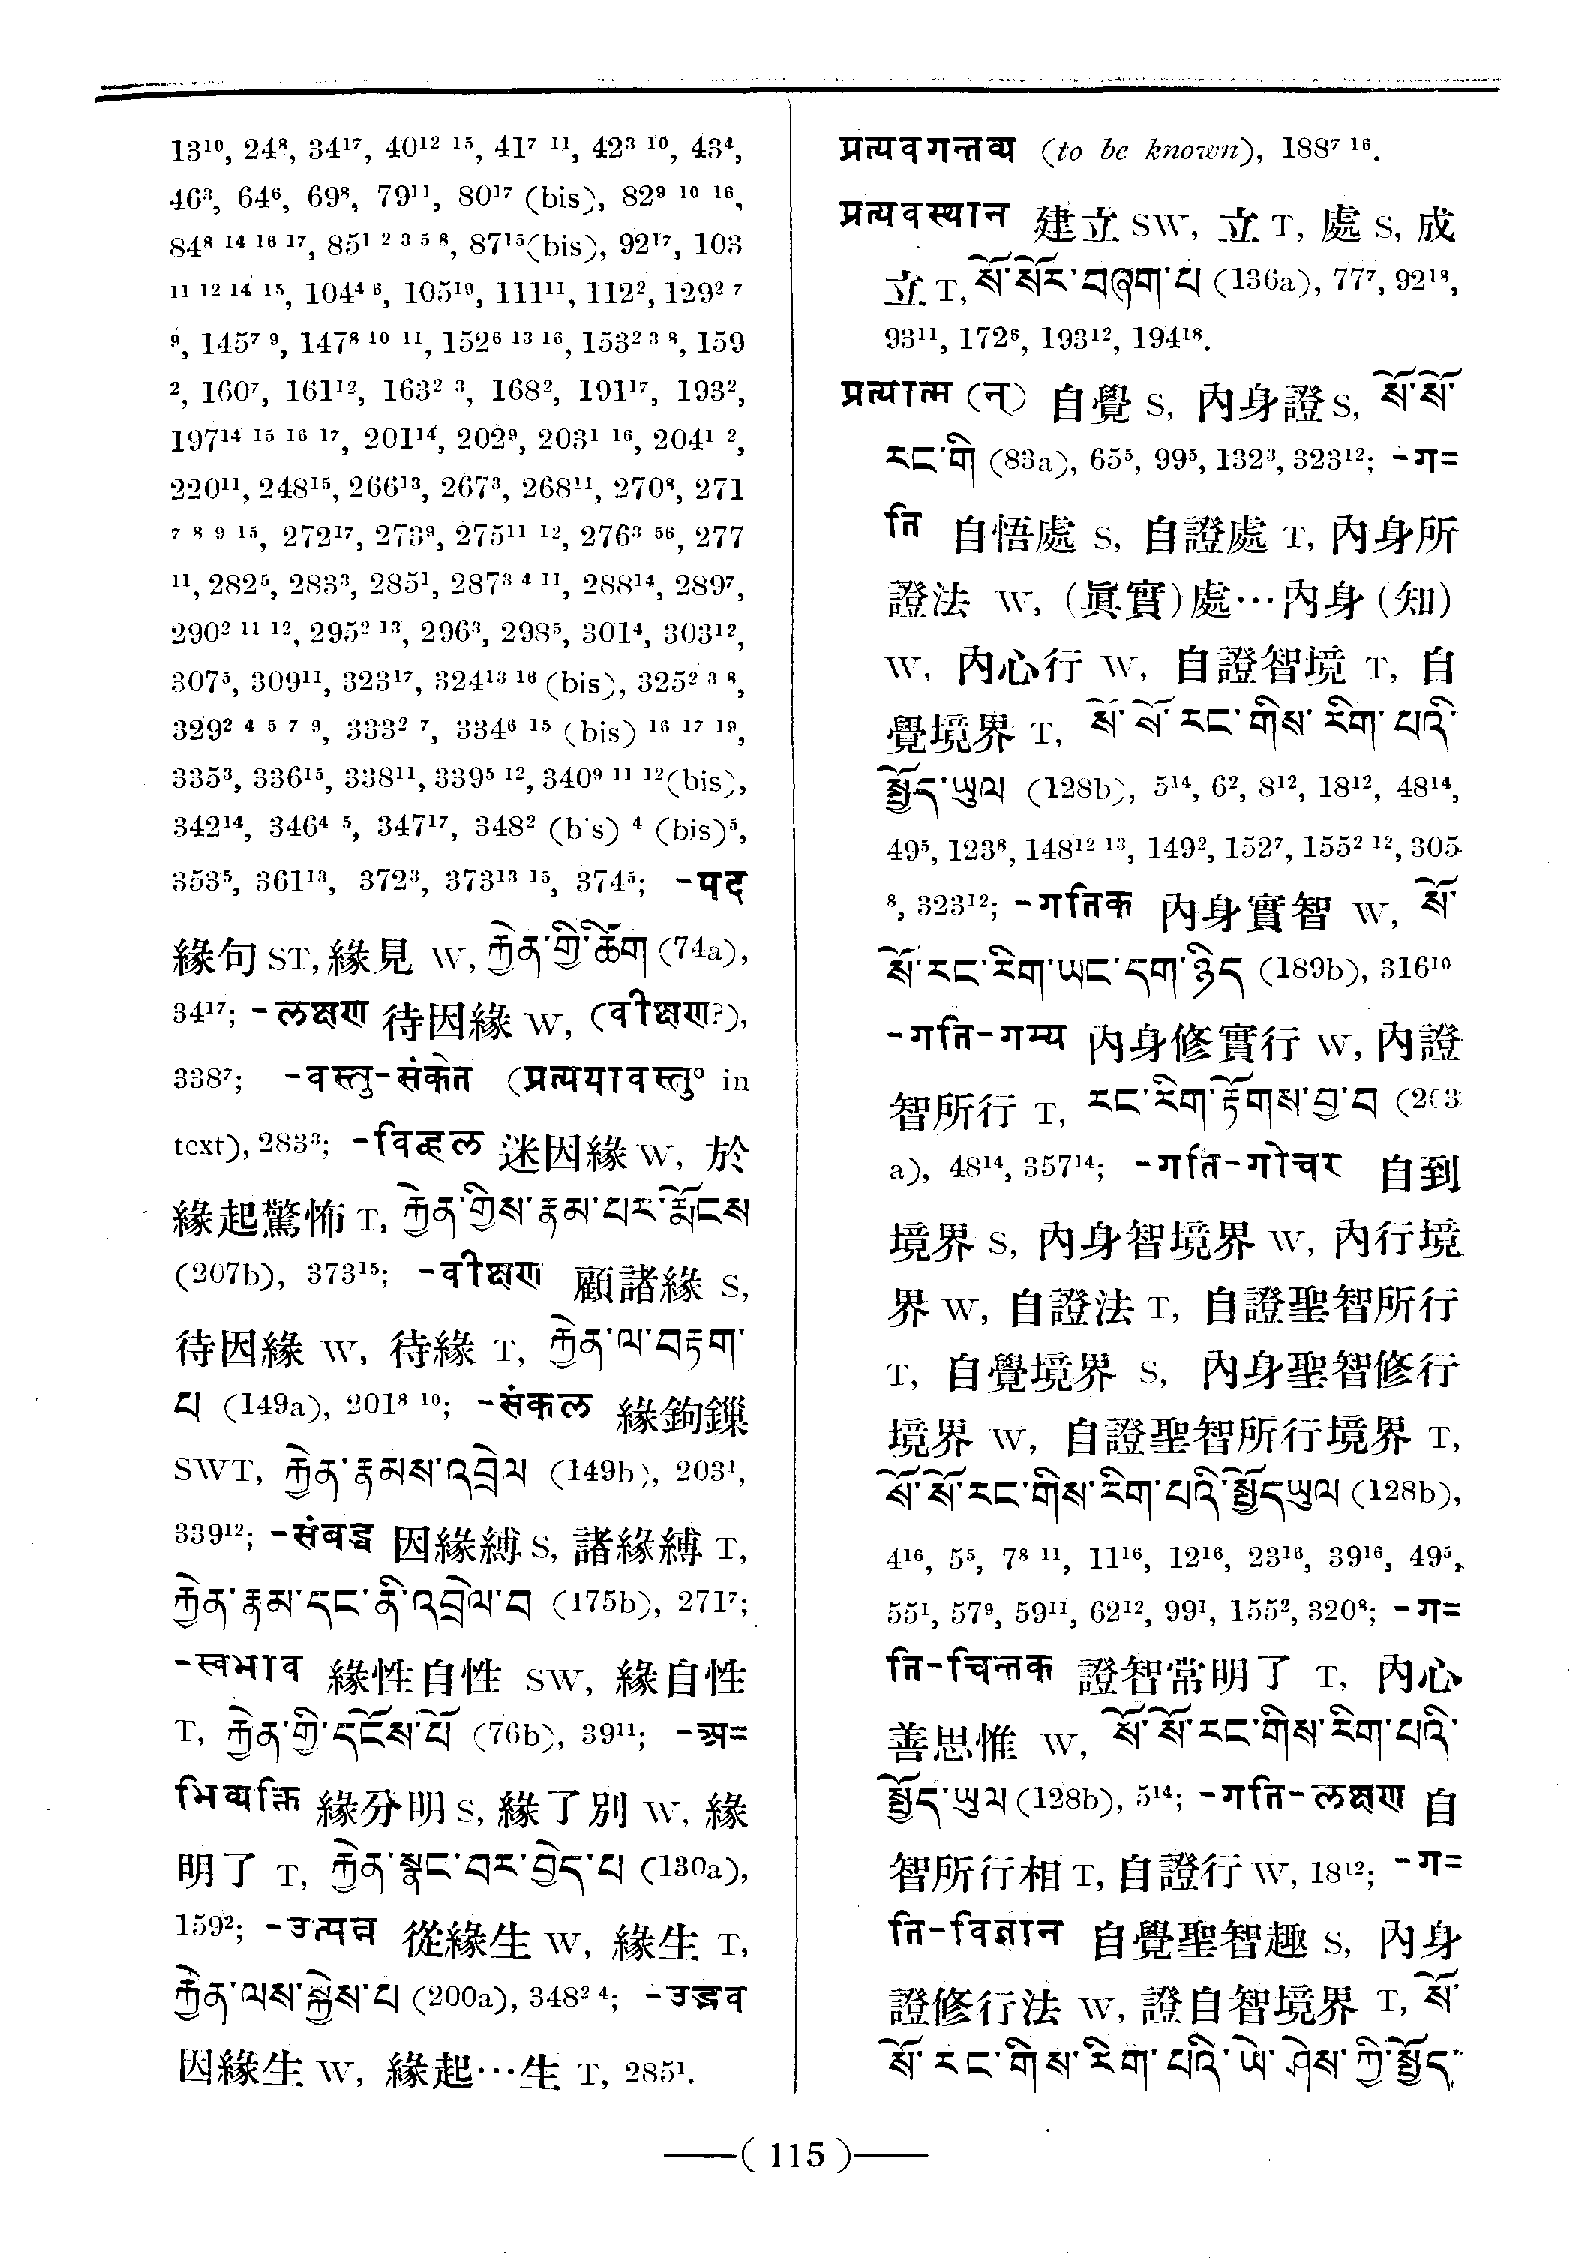 13¹⁰, 24⁸, 34¹⁷, 40¹² ¹⁵, 41⁷ ¹¹, 42³ ¹⁰, 43⁴,
46³, 64⁶, 69⁸, 79¹¹, 80¹⁷ (bis), 82⁹ ¹⁰ ¹⁶,
84⁸ ¹⁴ ¹⁶ ¹⁷, 85¹ ² ³ ⁵ ⁸, 87¹⁵(bis), 92¹⁷, 103
¹¹ ¹² ¹⁴ ¹⁵, 104⁴ ⁶, 105¹⁰, 111¹¹, 112², 129² ⁷
⁹, 145⁷ ⁹, 147⁸ ¹⁰ ¹¹, 152⁶ ¹³ ¹⁶, 153² ³ ⁸, 159
², 160⁷, 161¹², 163² ³, 168², 191¹⁷, 193²,
197¹⁴ ¹⁵ ¹⁶ ¹⁷, 201¹⁴, 202⁹, 203¹ ¹⁶, 204¹ ²,
220¹¹, 248¹⁵, 266¹³, 267³, 268¹¹, 270⁸, 271
⁷ ⁸ ⁹ ¹⁵, 272¹⁷, 273⁹, 275¹¹ ¹², 276³ ⁵⁶, 277
¹¹, 282⁵, 283³, 285¹, 287³ ⁴ ¹¹, 288¹⁴, 289⁷,
290² ¹¹ ¹², 295² ¹³, 296³, 298⁵, 301⁴, 303¹²,
307⁵, 309¹¹, 323¹⁷, 324¹³ ¹⁶ (bis), 325² ³ ⁸,
329² ⁴ ⁵ ⁷ ⁹, 333² ⁷, 334⁶ ¹⁵ (bis) ¹⁶ ¹⁷ ¹⁹,
335³, 336¹⁵, 338¹¹, 339⁵ ¹², 340⁹ ¹¹ ¹²(bis),
342¹⁴, 346⁴ ⁵, 347¹⁷, 348² (bis) ⁴ (bis)⁵,
353⁵, 361¹³, 372³, 373¹³ ¹⁵, 374⁵; -पद
緣句 ST, 緣見 W, རྐྱེན་གྱི་ཚིག (74a),
34¹⁷; -लक्षण 待因緣 W, (वीक्षण?),
338⁷; -वस्तु-संकेत (प्रत्ययावस्तु° in
text), 283³; -विह्वल 迷因緣 W, 於
緣起驚怖 T, རྐྱེན་གྱིས་རྣམ་པར་རྨོངས
(207b), 373¹⁵; -वीक्षण 顧諸緣 S,
待因緣 W, 待緣 T, རྐྱེན་ལ་བརྟག་
པ (149a), 201⁸ ¹⁰; -संकल 緣鉤鏁
SWT, རྐྱེན་རྣམས་འབྲེལ (149b), 203¹,
339¹²; -संबद्ध 因緣縛 S, 諸緣縛 T,
རྐྱེན་རྣམ་དང་ནི་འབྲེལ་བ (175b), 271⁷;
-स्वभाव 緣性自性 SW, 緣自性
T, རྐྱེན་གྱི་དངོས་པོ (76b), 39¹¹; -अ=
भिव्यक्ति 緣分明 S, 緣了別 W, 緣
明了 T, རྐྱེན་སྣང་བར་བྱེད་པ (130a),
159²; -उत्पन्न 從緣生 W, 緣生 T,
རྐྱེན་ལས་སྐྱེས་པ (200a), 348² ⁴; -उद्भव
因緣生 W, 緣起…生 T, 285¹.
प्रत्यवगन्तव्य (to be known), 188⁷ ¹⁶.
प्रत्यवस्थान 建立 SW, 立 T, 處 S, 成
立 T, སོ་སོར་བཞག་པ (136a), 77⁷, 92¹⁸,
93¹¹, 172⁶, 193¹², 194¹⁸.
प्रत्यात्म (न्) 自覺 S, 內身證 S, སོ་སོ་
རང་གི (83a), 65⁵, 99⁵, 132³, 323¹²; -ग=
ति 自悟處 S, 自證處 T, 內身所
證法 W, (眞實)處…內身(知)
W, 內心行 W, 自證智境 T, 自
覺境界 T, སོ་སོ་རང་གིས་རིག་པའི་
སྤྱོད་ཡུལ (128b), 5¹⁴, 6², 8¹², 18¹², 48¹⁴,
49⁵, 123⁸, 148¹² ¹³, 149², 152⁷, 155² ¹², 305
⁸, 323¹²; -गतिक 內身實智 W, སོ་
སོ་རང་རིག་ཡང་དག་ཉིད (189b), 316¹⁰
-गति-गम्य 內身修實行 W, 內證
智所行 T, རང་རིག་རྟོགས་བྱ་བ (203
a), 48¹⁴, 357¹⁴; -गति-गोचर 自到
境界 S, 內身智境界 W, 內行境
界 W, 自證法 T, 自證聖智所行
T, 自覺境界 S, 內身聖智修行
境界 W, 自證聖智所行境界 T,
སོ་སོ་རང་གིས་རིག་པའི་སྤྱོདཡུལ (128b),
4¹⁶, 5⁵, 7⁸ ¹¹, 11¹⁶, 12¹⁶, 23¹⁶, 39¹⁶, 49⁵,
55¹, 57⁹, 59¹¹, 62¹², 99¹, 155², 320⁸; -ग=
ति-चिन्तक 證智常明了 T, 內心
善思惟 W, སོ་སོ་རང་གིས་རིག་པའི་
སྤྱོད་ཡུལ (128b), 5¹⁴; -गति-लक्षण 自
智所行相 T, 自證行 W, 18¹²; -ग=
ति-विज्ञान 自覺聖智趣 S, 內身
證修行法 W, 證自智境界 T, སོ་
སོ་རང་གིས་རིག་པའི་ཡེ་ཤེས་ཀྱི་སྤྱོད་
—( 115 )—